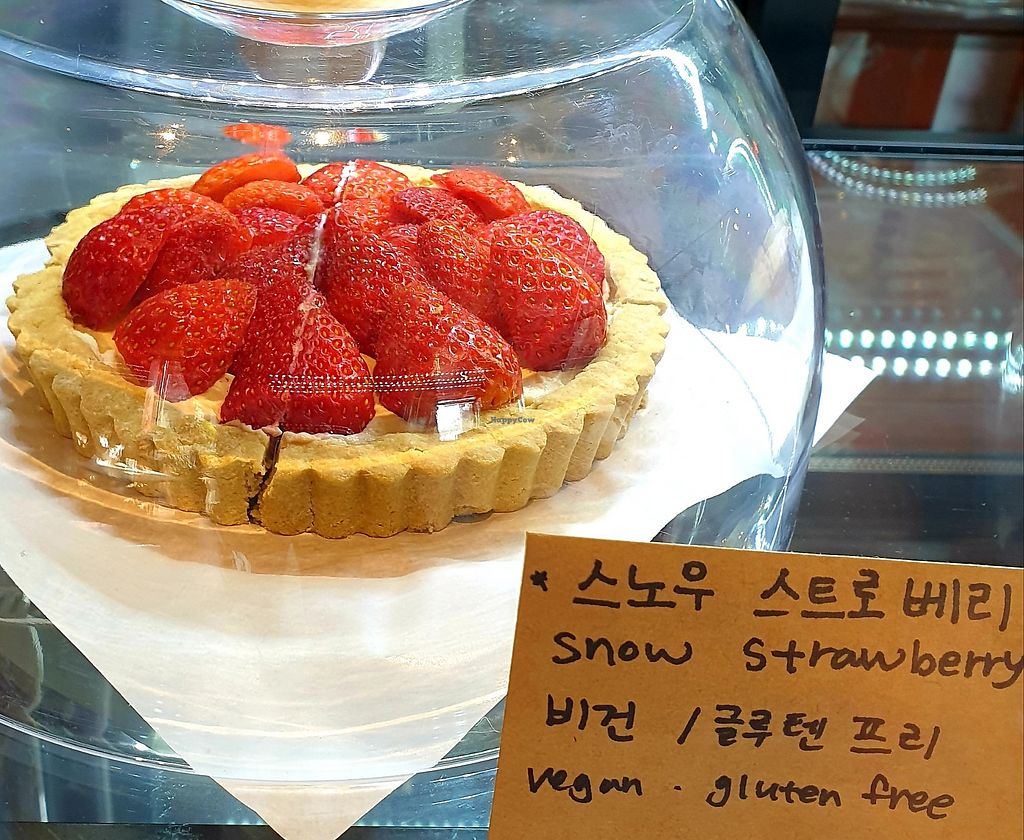 HappyCow
* 스노우 스트로베리
snow strawberry
비건 / 글루텐 프리
vegan . gluten free